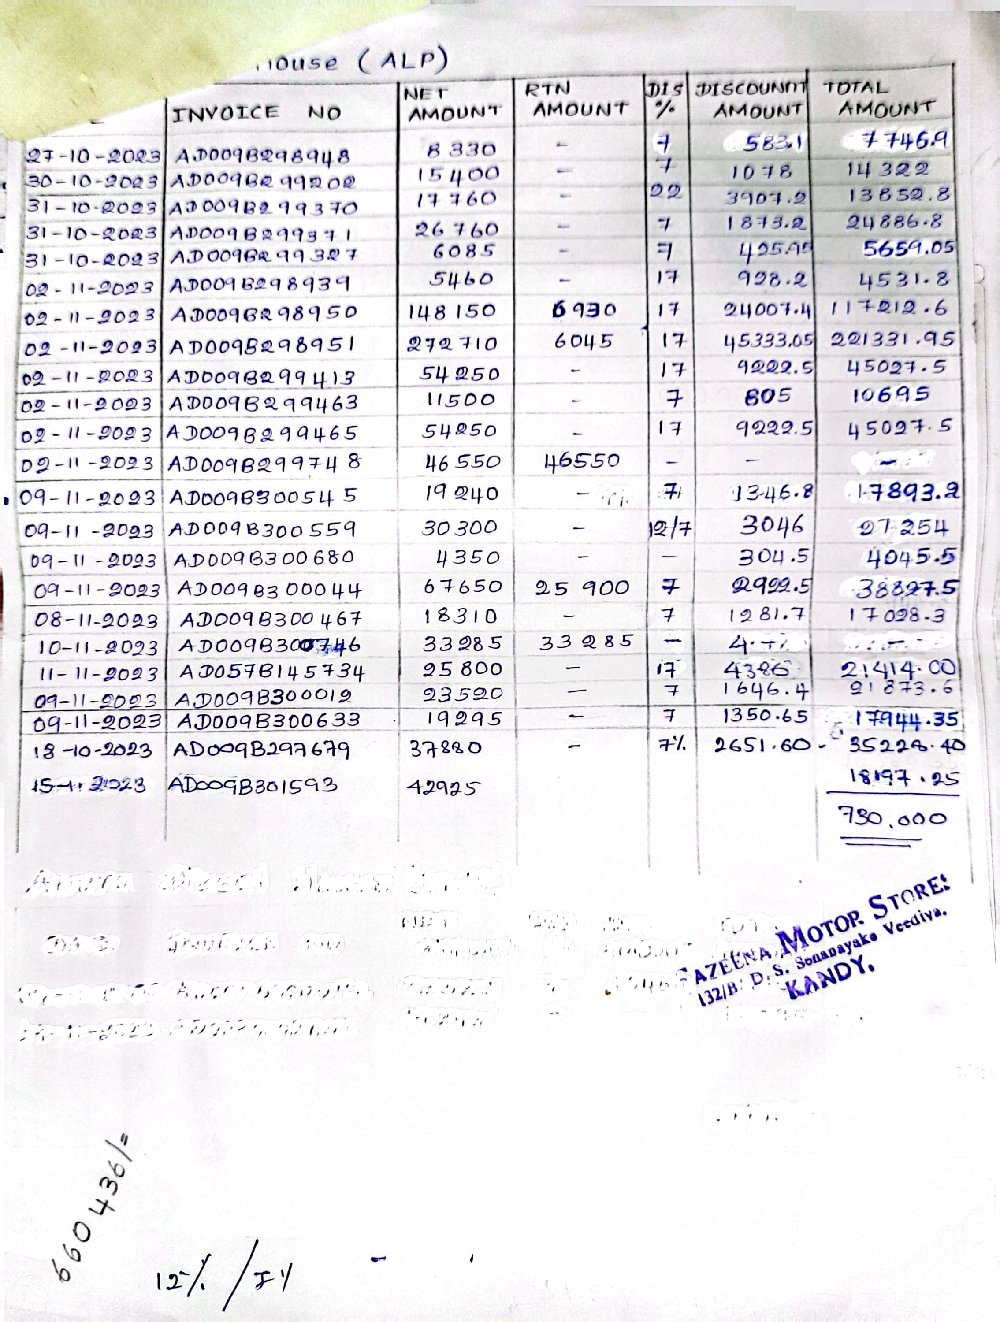 ouse (ALP)
INVOICE NO NET AMOUNT RTN AMOUNT DIS % DISCOUNT AMOUNT TOTAL AMOUNT
27-10-2023 AD009B298948 8330 - 7 583.1 7746.9
30-10-2023 AD009B299202 15400 - 7 1078 14322
31-10-2023 AD009B299370 17760 - 22 3907.2 13852.8
31-10-2023 AD009B299371 26760 - 7 1873.2 24886.8
31-10-2023 AD009B299327 6085 - 7 425.95 5659.05
02-11-2023 AD009B298939 5460 - 17 928.2 4531.8
02-11-2023 AD009B298950 148150 6930 17 24007.4 117212.6
02-11-2023 AD009B298951 272710 6045 17 45333.05 221331.95
02-11-2023 AD009B299413 54250 - 17 9222.5 45027.5
02-11-2023 AD009B299463 11500 - 7 805 10695
02-11-2023 AD009B299465 54250 - 17 9222.5 45027.5
02-11-2023 AD009B299748 46550 46550 - -
09-11-2023 AD009B300545 19240 - 7 1346.8 17893.2
09-11-2023 AD009B300559 30300 - 12/7 3046 27254
09-11-2023 AD009B300680 4350 - - 304.5 4045.5
09-11-2023 AD009B300044 67650 25900 7 2922.5 38827.5
08-11-2023 AD009B300467 18310 - 7 1281.7 17028.3
10-11-2023 AD009B300746 33285 33285 -
11-11-2023 AD057B145734 25800 - 17 4386 21414.00
09-11-2023 AD009B300012 23520 - 7 1646.4 21873.6
09-11-2023 AD009B300633 19295 - 7 1350.65 17944.35
18-10-2023 AD009B297679 37880 - 7% 2651.60 - 35228.40
15-11-2023 AD009B301593 42925 18197.25
730.000
AZEENA MOTOR STORES
132/B. D. S. Sonanayake Veediya.
KANDY.
660436/=
12%